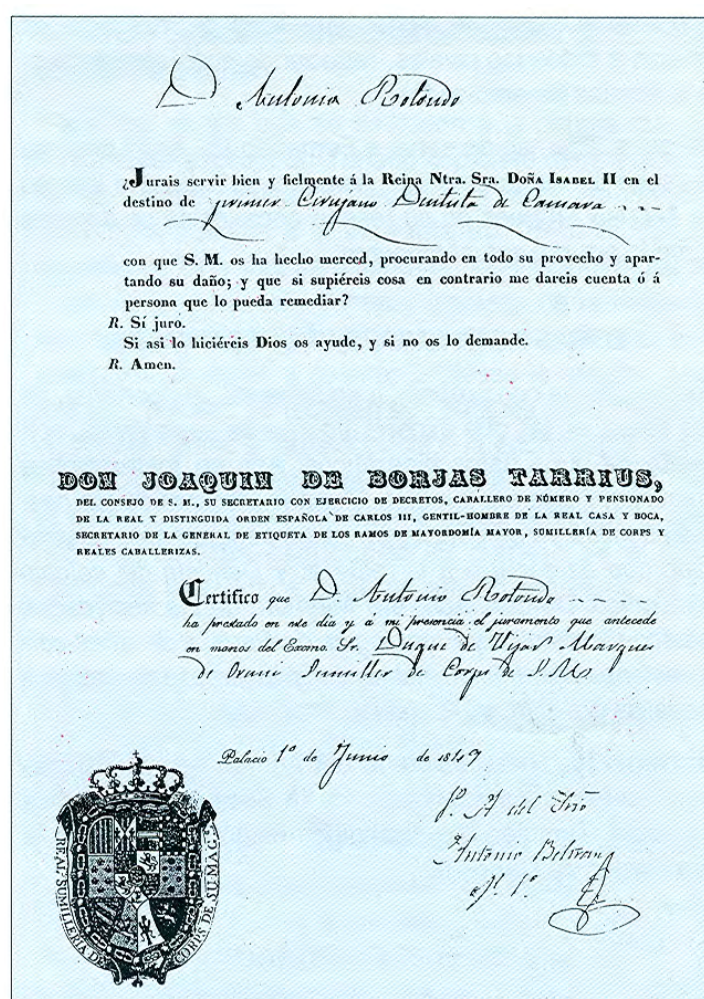 D. Antonio Rotondo
¿Jurais servir bien y fielmente á la Reina Ntra. Sra. DOÑA ISABEL II en el
destino de primer Cirujano Dentista de Camara
con que S. M. os ha hecho merced, procurando en todo su provecho y apar-
tando su daño; y que si supiéreis cosa en contrario me dareis cuenta ó á
persona que lo pueda remediar?
R. Sí juro.
Si asi lo hiciéreis Dios os ayude, y si no os lo demande.
R. Amen.
DON JOAQUIN DE BORJAS TARRIUS,
DEL CONSEJO DE S. M., SU SECRETARIO CON EJERCICIO DE DECRETOS, CABALLERO DE NÚMERO Y PENSIONADO
DE LA REAL Y DISTINGUIDA ORDEN ESPAÑOLA DE CARLOS III, GENTIL-HOMBRE DE LA REAL CASA Y BOCA,
SECRETARIO DE LA GENERAL DE ETIQUETA DE LOS RAMOS DE MAYORDOMÍA MAYOR, SUMILLERÍA DE CORPS Y
REALES CABALLERIZAS.
Certifico que D. Antonio Rotondo
ha prestado en este dia y á mi presencia el juramento que antecede
en manos del Excmo. Sr. Duque de Hijar Marques
de Orani Sumiller de Corps de S. M.
Palacio 1º de Junio de 1849
P. A. del Srio
Antonio Beltran
Ofl. 1º
REAL SUMILLERIA DE CORPS DE SU MAG.